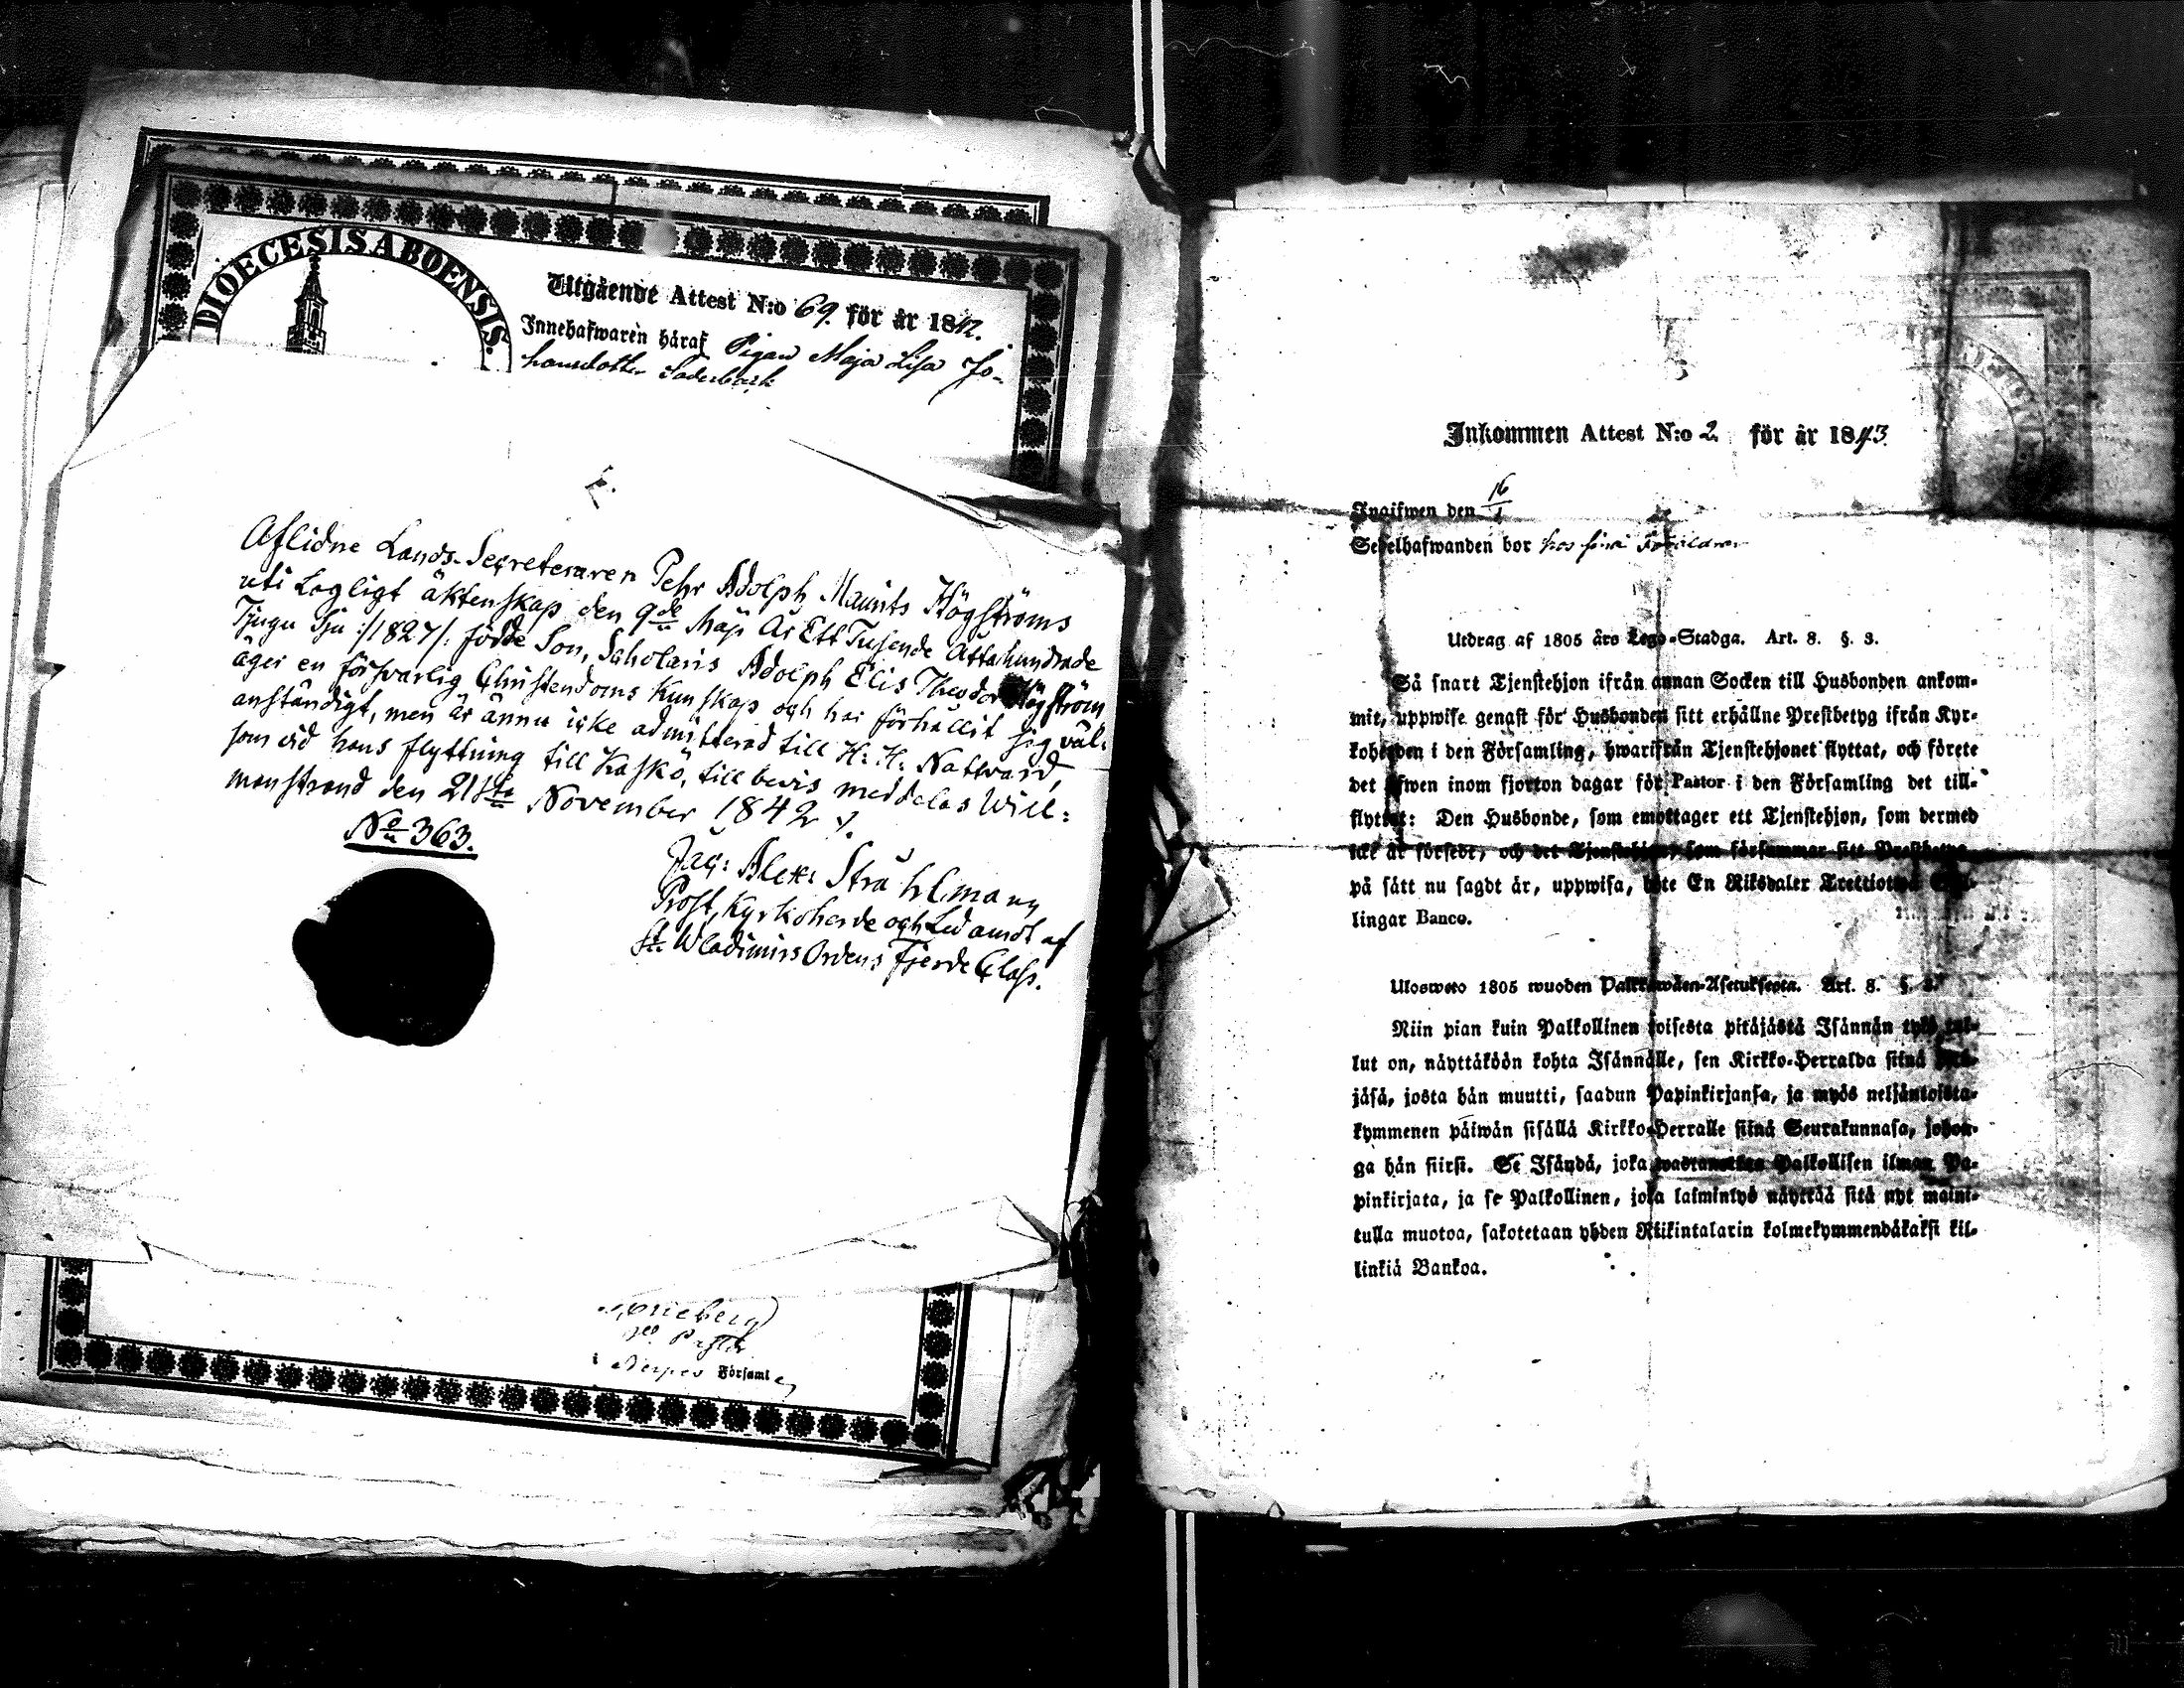 DIOECESIS ABOENSIS.
Utgående Attest N:o 69. för år 1842.
Innehafwaren häraf Pigan Maja Lisa Jo-
hansdotter Söderback
Aflidne Lands-Secreteraren Pehr Adolph Maurits Högströms
uti Lagligt äktenskap den 9de Maji År Ett Tusende Åttahundrade
Tjugu Sju :/1827/: födde Son, Scholaris Adolph Elis Theodor Högström
äger en försvarlig Christendoms Kunskap och har förhållit sig väl-
anständigt, men är ännu icke admitterad till H: H: Nattvard,
som vid hans flyttning till Kaskö, till bevis meddelas Will:
manstrand den 21sta November 1842 ⁒.
No 363.
Alex: Stråhlmann
Prost, Kyrkoherde och Ledamot af
St. Wladimirs Ordens Fjerde Class.
Pastor
Nerpes Församl
Inkommen Attest N:o 2. för år 1843.
Ingifwen den 16/1
Sedelhafwanden bor hos sina Föräldrar
Utdrag af 1805 års Lego-Stadga. Art. 8. §. 3.
Så snart Tjenstehjon ifrån annan Socken till Husbonden ankom-
mit, uppwise genast för Husbonden sitt erhållne Prestbetyg ifrån Kyr-
koherden i den Församling, hwarifrån Tjenstehjonet flyttat, och förete
det äfwen inom fjorton dagar för Pastor i den Församling det till-
flyttat: Den Husbonde, som emottager ett Tjenstehjon, som dermed
icke är försedt, och det Tjenstehjon, som försummar sitt Prestbetyg
på sätt nu sagdt är, uppwisa, böte En Riksdaler Trettiotvå Skil-
lingar Banco.
Ulosweto 1805 wuoden Palkkawäen-Asetuksesta. Art. 8. §. 3.
Niin pian kuin Palkollinen toisesta pitäjästä Isännän tykö tul-
lut on, näyttäköön kohta Isännälle, sen Kirkko-Herralda siinä Pitä-
jäsä, josta hän muutti, saadun Papinkirjansa, ja myös neljäntoista-
kymmenen päiwän sisällä Kirkko-Herralle siinä Seurakunnasa, johon-
ga hän siirsi. Se Isändä, joka wastanottaa Palkollisen ilman Pa-
pinkirjata, ja se Palkollinen, joka laiminlyö näyttää sitä nyt maini-
tulla muotoa, sakotetaan yhden Riikintalarin kolmekymmendäkaksi kil-
linkiä Bankoa.